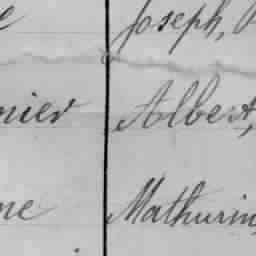 Joseph,
nier Albert,
ne Mathurin